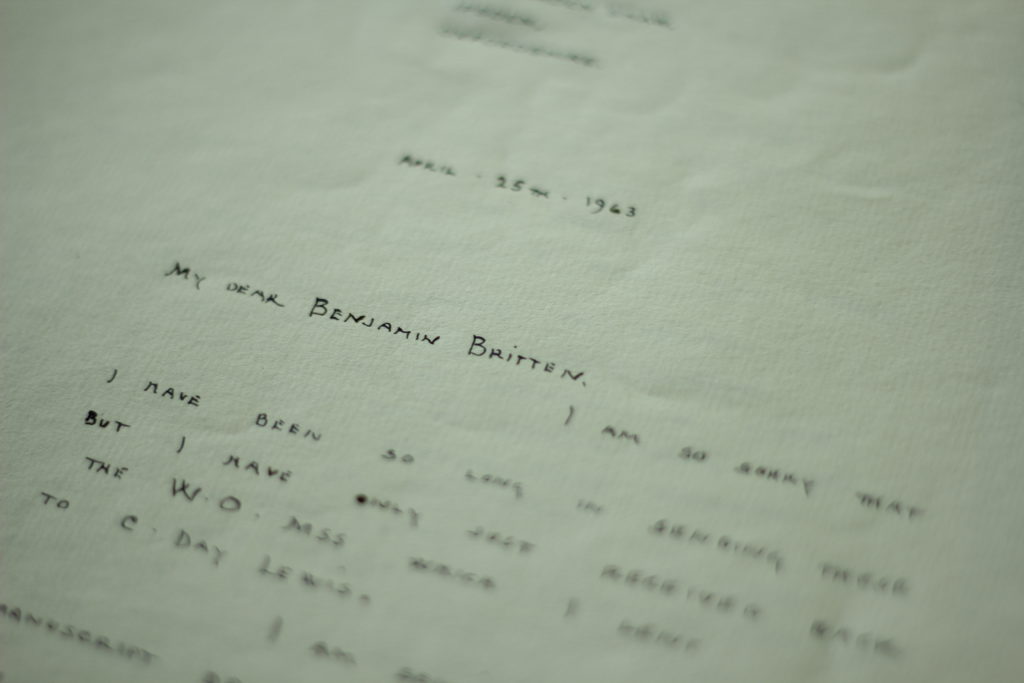 APRIL · 25TH · 1963
MY DEAR BENJAMIN BRITTEN,
I AM SO SORRY THAT
I HAVE BEEN SO LONG IN SENDING THESE
BUT I HAVE ONLY JUST RECEIVED BACK
THE W.O. MSS WHICH I LENT
TO C. DAY LEWIS.
I AM
MANUSCRIPT